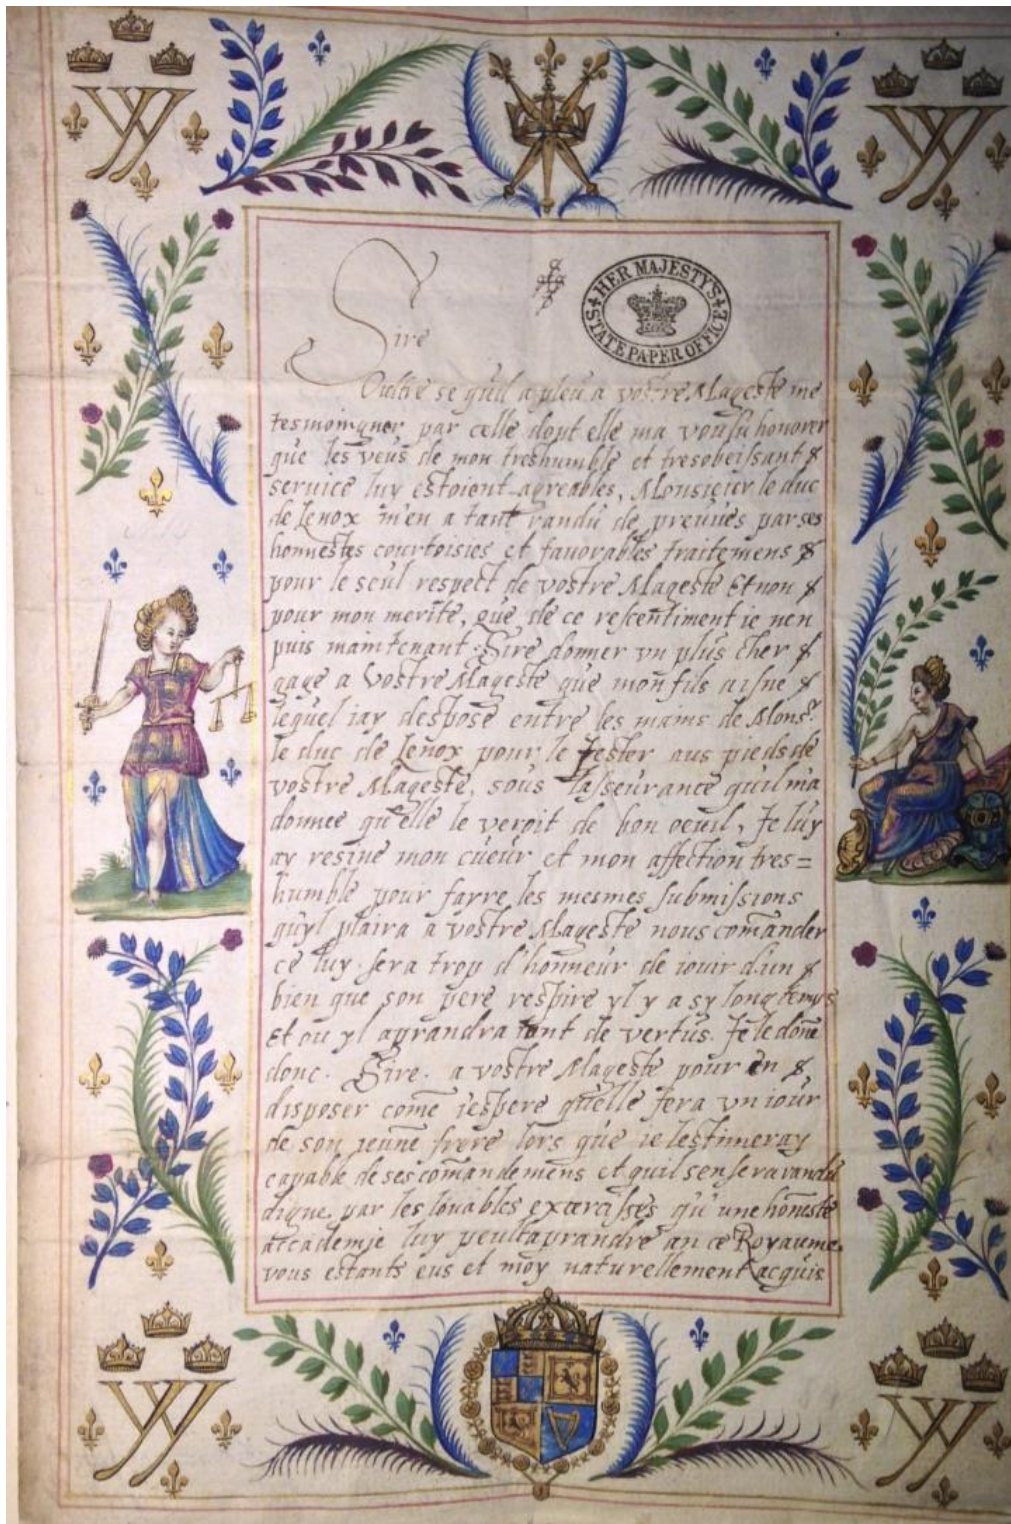 HER MAJESTY'S
STATE PAPER OFFICE
Sire
Oultre se quil a pleu a vostre Mageste me
tesmoingner par celle dont elle ma voulu honorer
que les veus de mon treshumble et tresobeissant
service luy estoient agreables, Monsieur le duc
de Lenox m'en a tant randu de preuves par ses
honnestes courtoisies et favorables traitemens
pour le seul respect de vostre Mageste Et non
pour mon merite, que de ce rescentiment ie nen
puis maintenant Sire donner un plus cher
gage a Vostre Mageste que mon fils aisne
lequel iay desposé entre les mains de Monsr
le duc de Lenox pour le jester aus pieds de
vostre Mageste, sous lasseurance quil ma
donnee qu'elle le veroit de bon oeuil, Je luy
ay resiné mon cueur et mon affection tres=
humble pour farre les mesmes submissions
quyl plaira a vostre Mageste nous comander
ce luy sera trop d'honneur de iouir d'un
bien que son pere respire yl y a sy long temps
Et ou yl aprandra tant de vertus. Je le done
donc. Sire. a vostre Mageste pour en
disposer come iespere quelle fera un iour
de son jeune frere lors que ie lestimeray
capable de ses comandemens et quil sen sera randu
digne par les louables exercisses qu'une honeste
accademie luy peult aprandre an ce Royaume
vous estants eus et moy naturellement acquis